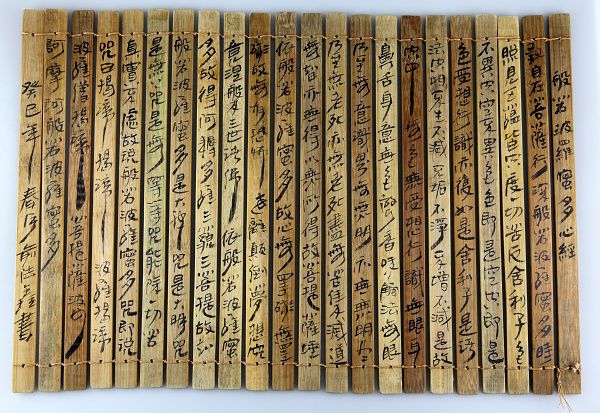 般若波羅蜜多心經
觀自在菩薩行深般若波羅蜜多時
照見五蘊皆空度一切苦厄舍利子色
不異空空不異色色即是空空即是
色受想行識亦復如是舍利子是諸
法空相不生不滅不垢不淨不增不減是故
空中無色無受想行識無眼耳
鼻舌身意無色聲香味觸法無眼界
乃至無意識界無無明亦無無明盡
乃至無老死亦無老死盡無苦集滅道
無智亦無得以無所得故菩提薩埵
依般若波羅蜜多故心無罣礙無罣
礙故無有恐怖遠離顛倒夢想究
竟涅槃三世諸佛依般若波羅蜜
多故得阿耨多羅三藐三菩提故知
般若波羅蜜多是大神咒是大明咒
是無上咒是無等等咒能除一切苦
真實不虛故說般若波羅蜜多咒即說
咒曰揭諦揭諦波羅揭諦
波羅僧揭諦菩提薩婆
訶摩訶般若波羅蜜多
癸巳年春月書